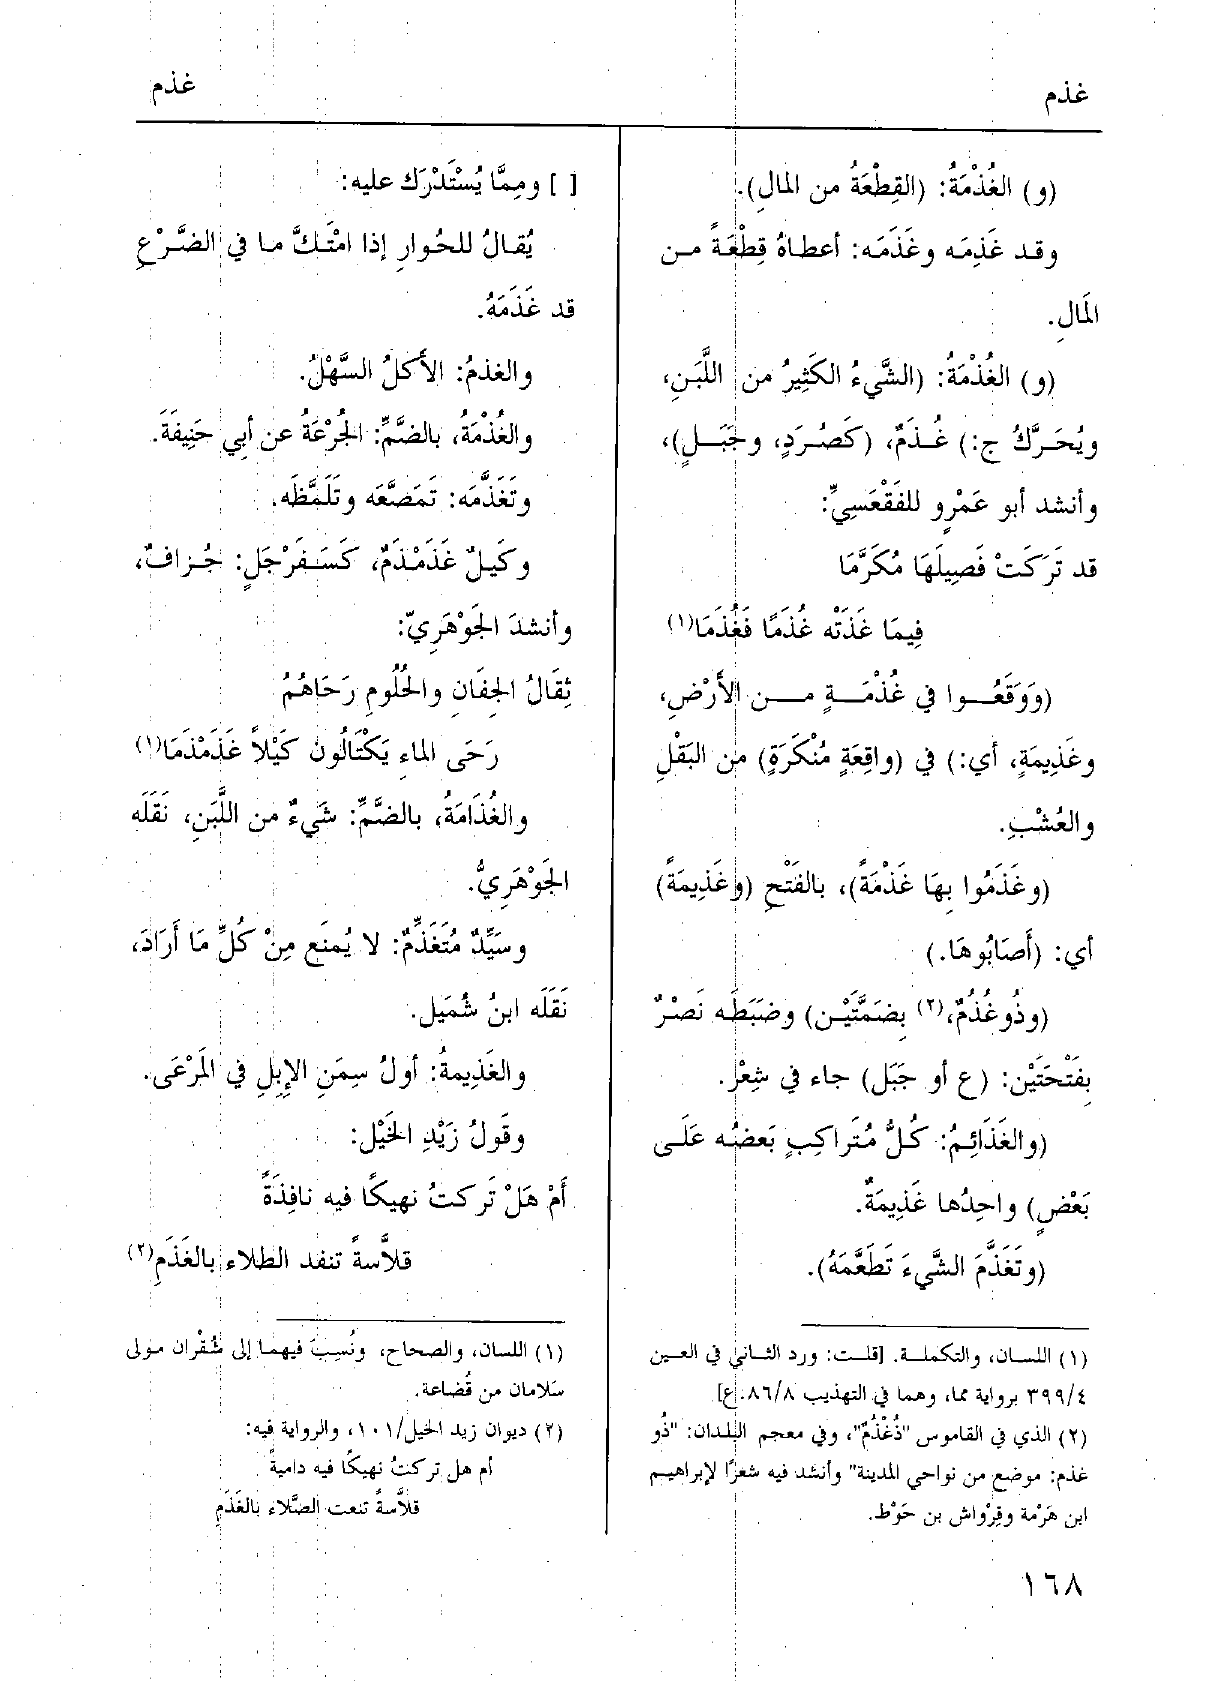 غذم
غذم
(و) الغُذْمَةُ: (القِطْعَةُ من المالِ).
وقد غَذِمَه وغَذَمَه: أعطاهُ قِطْعَةً من
المَالِ.
(و) الغُذْمَةُ: (الشَّيءُ الكَثِيرُ من اللَّبَنِ،
ويُحَرَّكُ ج:) غُذَمٌ، (كَصُرَدٍ، وجَبَلٍ)،
وأنشد أبو عَمْرٍو للفَقْعَسِيِّ:
قد تَرَكَتْ فَصِيلَهَا مُكَرَّمَا
فِيمَا غَذَتْه غُذَمًا فَغُذَمَا(١)
(وَوَقَعُوا في غُذْمَةٍ من الأَرْضِ،
وغَذِيمَةٍ، أي:) في (واقِعَةٍ مُنْكَرَةٍ) من البَقْلِ
والعُشْبِ.
(وغَذَمُوا بِهَا غَذْمَةً)، بالفَتْحِ (وغَذِيمَةً)
أي: (أَصَابُوهَا.)
(وذُو غُذُمٌ،(٢) بِضَمَّتَيْن) وضَبَطَه نَصْرٌ
بِفَتْحَتَيْن: (ع أو جَبَل) جاء في شِعْر.
(والغَذَائِمُ: كُلُّ مُتَراكِبٍ بَعضُه عَلَى
بَعْضٍ) واحِدُها غَذِيمَةٌ.
(وتَغَذَّمَ الشَّيءَ تَطَعَّمَهُ).
(١) اللسان، والتكملة. [قلت: ورد الثاني في العين
٣٩٩/٤ برواية مما، وهما في التهذيب ٨٦/٨. ع]
(٢) الذي في القاموس "ذُغْذُمٌ"، وفي معجم البلدان: "ذُو
غذم: موضع من نواحي المدينة" وأنشد فيه شعرًا لإبراهيم
ابن هَرْمة وقِرْواش بن حَوْط.
[ ] ومِمَّا يُسْتَدْرَك عليه:
يُقالُ للحُوارِ إذا امْتَكَّ ما في الضَّرْعِ
قد غَذَمَهُ.
والغذمُ: الأكلُ السَّهْلُ.
والغُذْمَةُ، بالضَّمِّ: الجُرْعَةُ عن أبي حَنِيفَةَ.
وتَغَذَّمه: تَمَضَّغَه وتَلَمَّظَه.
وكَيلٌ غَذَمْذَمٌ، كَسَفَرْجَلٍ: جُزافٌ،
وأنشدَ الجَوْهَرِيّ:
ثِقَالُ الجِفَانِ والحُلُومِ رَحَاهُمُ
رَحَى الماءِ يَكْتَالُون كَيْلاً غَذَمْذَمَا(١)
والغُذَامَةُ، بالضَّمِّ: شَيءٌ من اللَّبَنِ، نَقَلَه
الجَوْهَرِيُّ.
وسَيِّدٌ مُتَغَذِّمٌ: لا يُمنَع مِنْ كُلِّ مَا أَرَادَ،
نَقَلَه ابنُ شُمَيل.
والغَذِيمةُ: أولُ سِمَنِ الإبِلِ في المَرْعَى.
وقَولُ زَيْدِ الخَيْل:
أَمْ هَلْ تَركتُ نهيكًا فيه نافِذَةً
قلاَّسةً تنفد الطلاء بالغَذَمِ(٢)
(١) اللسان، والصحاح، ونُسِبَ فيهما إلى شُقْران مولى
سَلامان من قُضاعة.
(٢) ديوان زيد الخيل/١٠١، والرواية فيه:
أم هل تركتُ نهيكًا فيه داميةً
قلاَّسةً تنعت الصَّلاء بالغَذَمِ
١٦٨